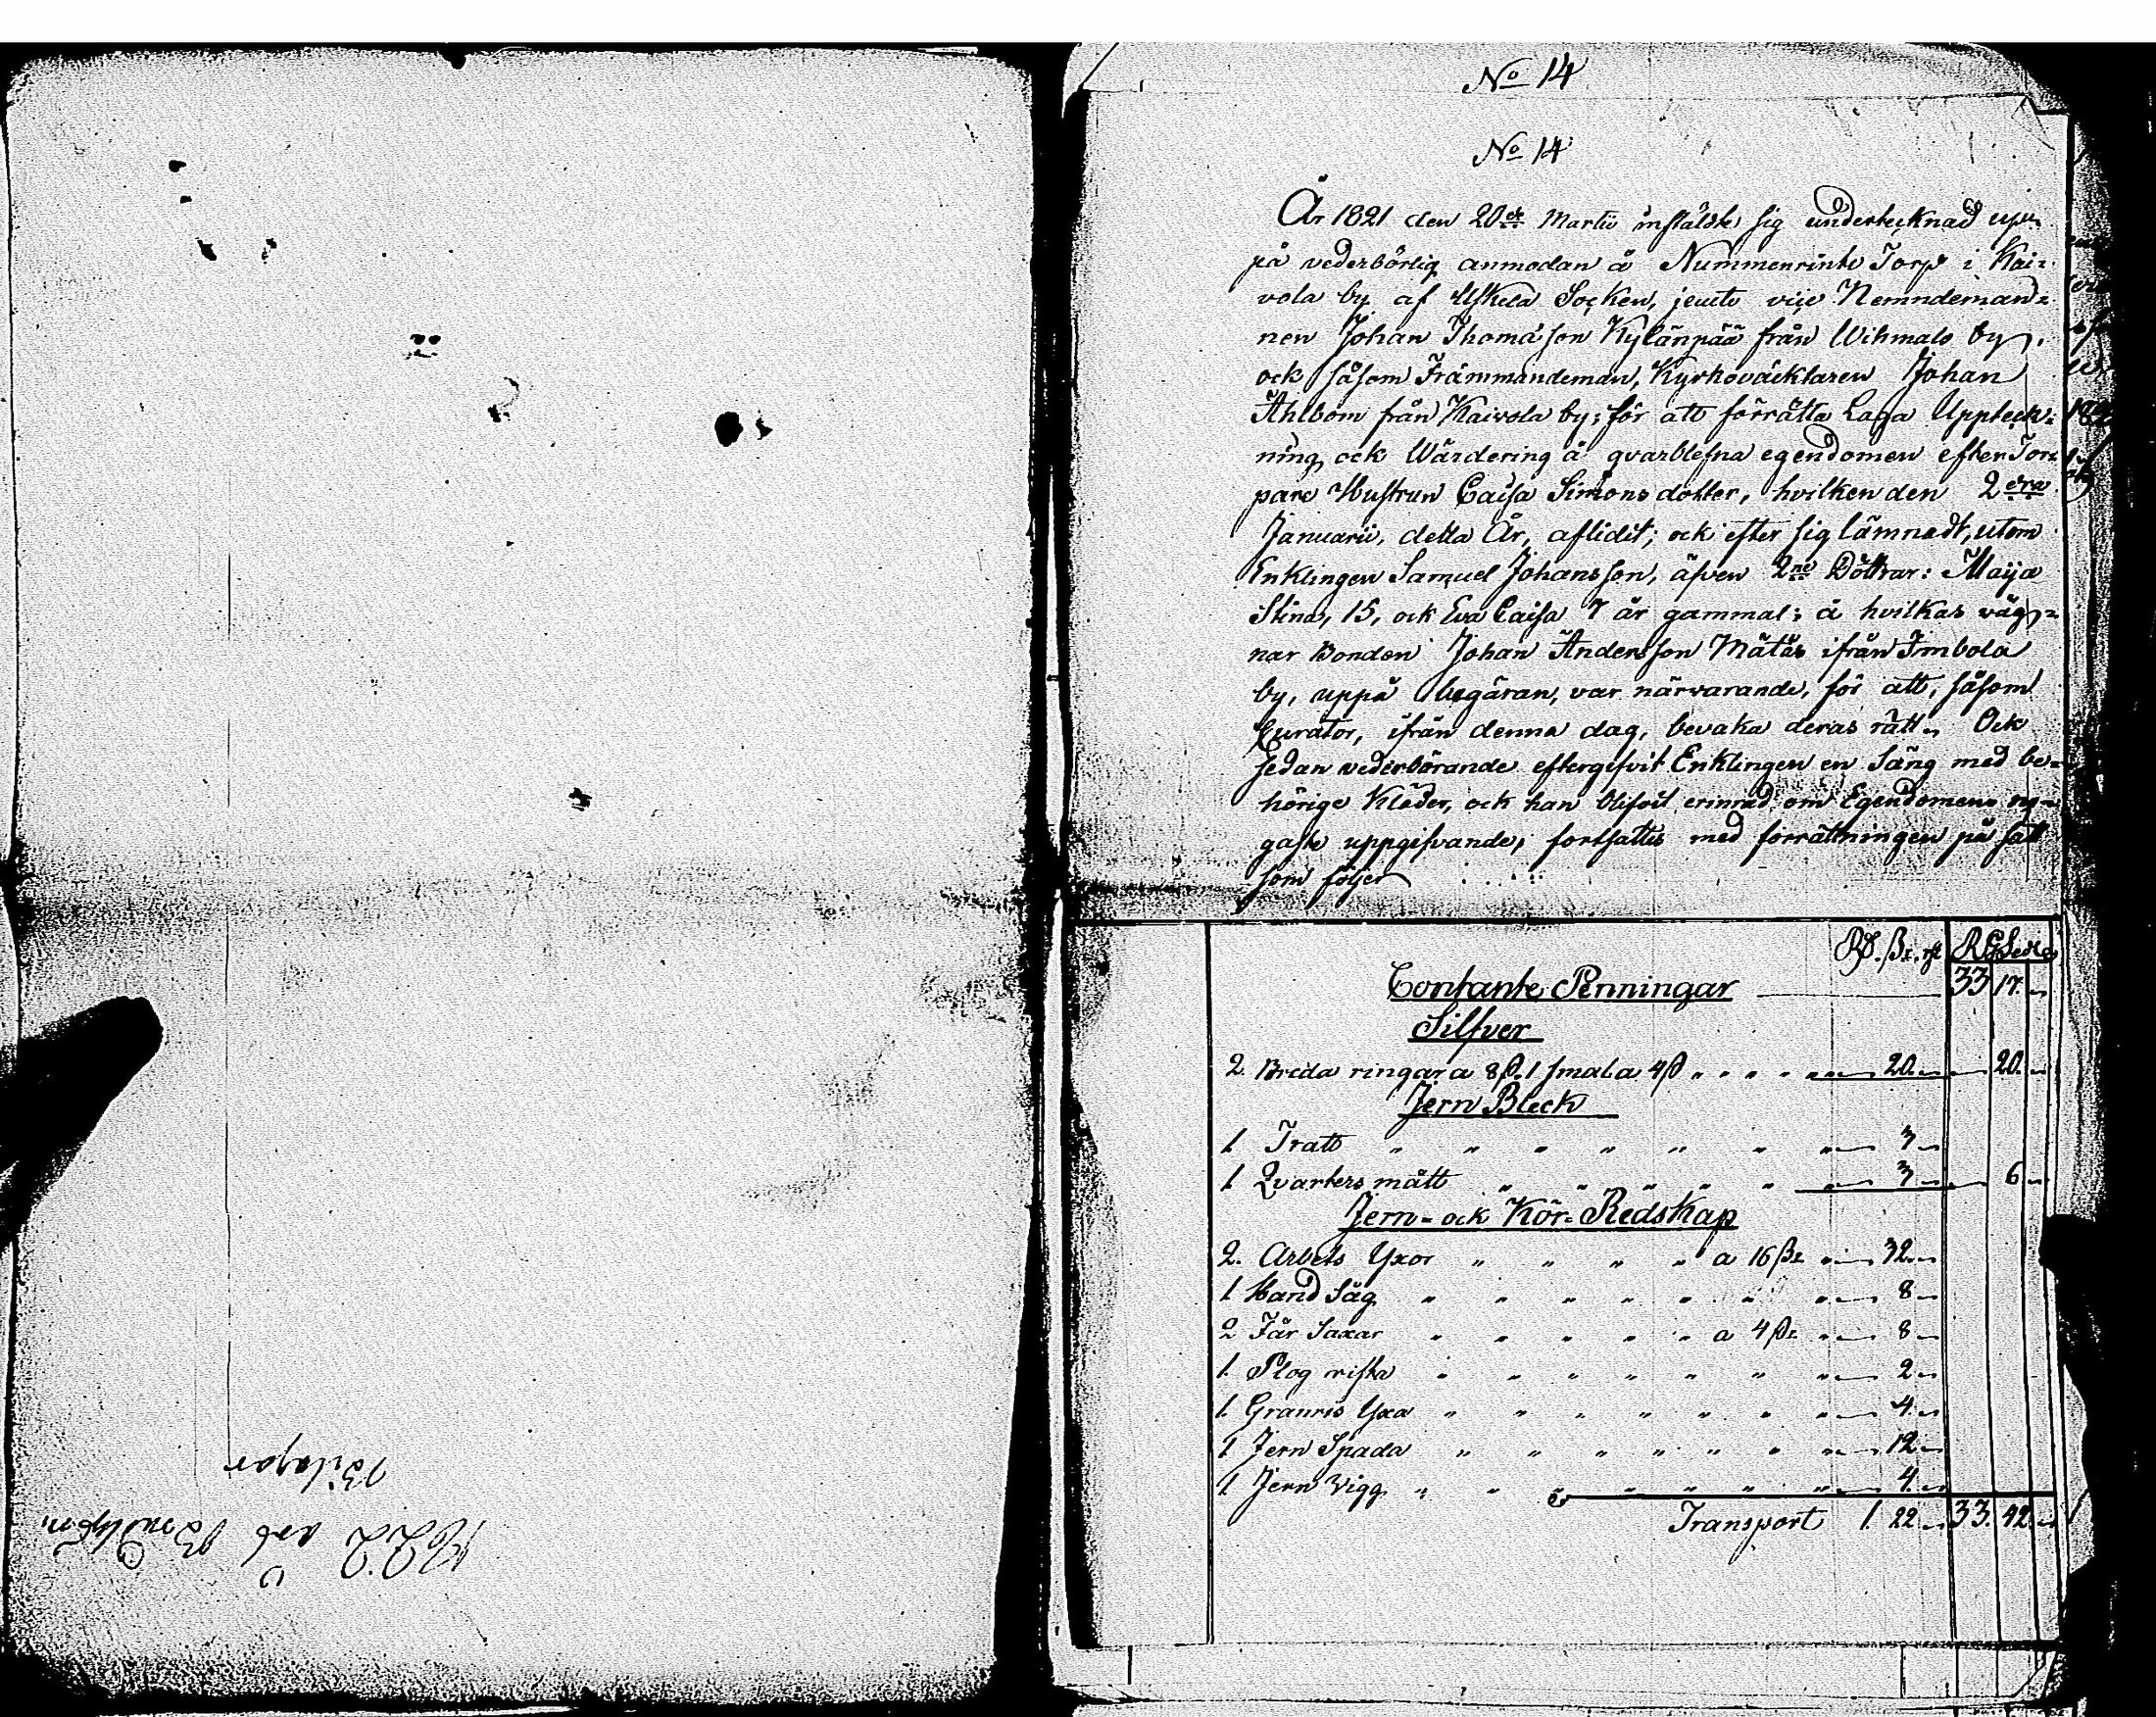 No 14
No 14
År 1821 den 20de Martii instälde sig undertecknad upp
på vederbörlig anmodan å Nummenrinte Torp i Kai=
vola by af Uskela Socken, jemte vice Nemndeman=
nen Johan Thomasson Kylänpää från Wihmalo by,
ock såsom Främmandeman, Kyrkoväcktaren Johan
Åhlbom från Kaivola by; för att förrätta Laga Upptek=
ning ock Wärdering å qvarblefna egendomen efter Tor=
pare Hustrun Caisa Simonsdotter, hvilken den 2dra
Januarii, detta År, aflidit; ock efter sig lämnadt, utom
Enklingen Samuel Johansson, äfven 2ne Döttrar: Maija
Stina, 15, ock Eva Caisa 7 år gammal; å hvilkas väg=
nar Bonden Johan Andersson Mätäs ifrån Imbola
by, uppå begäran, var närvarande, för att, såsom
Curator, ifrån denna dag, bevaka deras rätt. Ock
sedan vederbörande eftergifvit Enklingen en Säng med be=
hörige Kläder, ock han blifvit erinrad om Egendomens no=
gaste uppgifvande; fortsattes med förrättningen på sätt
som följer
Contante Penningar 33 17
Silfver
2 Breda ringar a 8 ß. 1 smala 4 ß 20 20
Jern Bleck
1 Tratt 3
1 Qvarters mått 3 6
Jern- ock Kör-Redskap
2. Arbets Yxor a 16 ß 32
1 Hand Såg 8
2 Får Saxar a 4 ß 8
1. Plog rista 2
1. Granris Yxa 4
1 Jern Spada 12
1 Jern Vigg 4
Transport 1. 22 33. 42
Bilagor